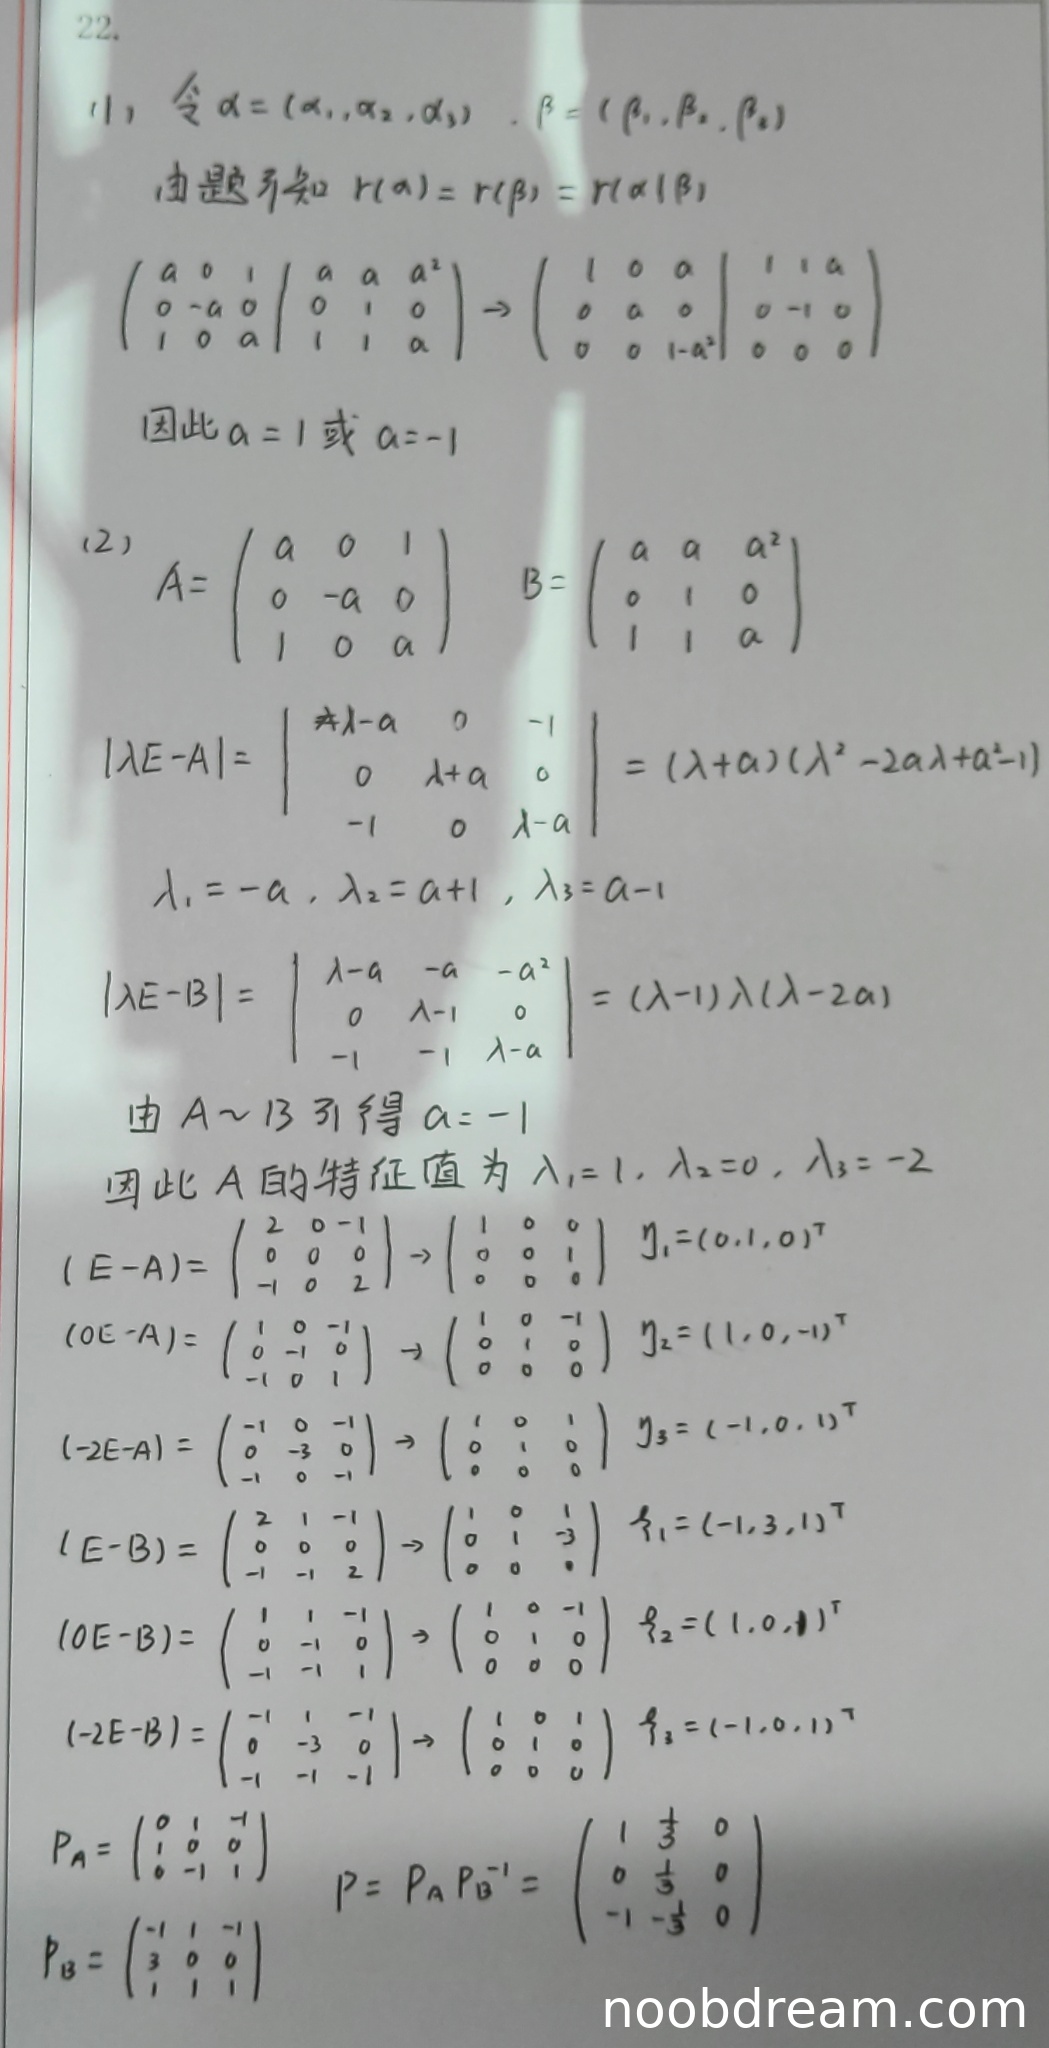 22.
(1) 令 α = (α₁, α₂, α₃) . β = (β₁, β₂, β₃)
由题可知 r(α) = r(β) = r(α|β)
( a 0 1 | a a a² ; 0 -a 0 | 0 1 0 ; 1 0 a | 1 1 a ) → ( 1 0 a | 1 1 a ; 0 a 0 | 0 -1 0 ; 0 0 1-a² | 0 0 0 )
因此 a = 1 或 a = -1
(2) A = ( a 0 1 ; 0 -a 0 ; 1 0 a ) B = ( a a a² ; 0 1 0 ; 1 1 a )
|λE-A| = | λ-a 0 -1 ; 0 λ+a 0 ; -1 0 λ-a | = (λ+a)(λ² -2aλ+a²-1)
λ₁ = -a , λ₂ = a+1 , λ₃ = a-1
|λE-B| = | λ-a -a -a² ; 0 λ-1 0 ; -1 -1 λ-a | = (λ-1)λ(λ-2a)
由 A~B 可得 a = -1
因此 A 的特征值为 λ₁=1. λ₂=0. λ₃=-2
(E-A) = ( 2 0 -1 ; 0 0 0 ; -1 0 2 ) → ( 1 0 0 ; 0 0 1 ; 0 0 0 ) η₁=(0.1,0)ᵀ
(0E-A) = ( 1 0 -1 ; 0 -1 0 ; -1 0 1 ) → ( 1 0 -1 ; 0 1 0 ; 0 0 0 ) η₂=(1,0,-1)ᵀ
(-2E-A) = ( -1 0 -1 ; 0 -3 0 ; -1 0 -1 ) → ( 1 0 1 ; 0 1 0 ; 0 0 0 ) η₃=(-1,0,1)ᵀ
(E-B) = ( 2 1 -1 ; 0 0 0 ; -1 -1 2 ) → ( 1 0 1 ; 0 1 -3 ; 0 0 0 ) ξ₁=(-1,3,1)ᵀ
(0E-B) = ( 1 1 -1 ; 0 -1 0 ; -1 -1 1 ) → ( 1 0 -1 ; 0 1 0 ; 0 0 0 ) ξ₂=(1,0,1)ᵀ
(-2E-B) = ( -1 1 -1 ; 0 -3 0 ; -1 -1 -1 ) → ( 1 0 1 ; 0 1 0 ; 0 0 0 ) ξ₃=(-1,0,1)ᵀ
P_A = ( 0 1 -1 ; 1 0 0 ; 0 -1 1 ) P = P_A P_B⁻¹ = ( 1 1/3 0 ; 0 1/3 0 ; -1 -1/3 0 )
P_B = ( -1 1 -1 ; 3 0 0 ; 1 1 1 )
noobdream.com